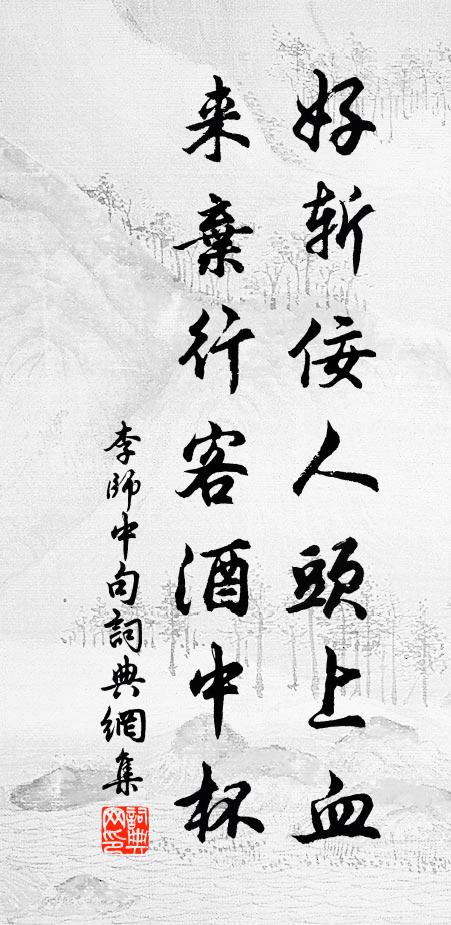 好斩佞人頭上血
来棄行客酒中杯
李師中句詞典網集
詞典網印